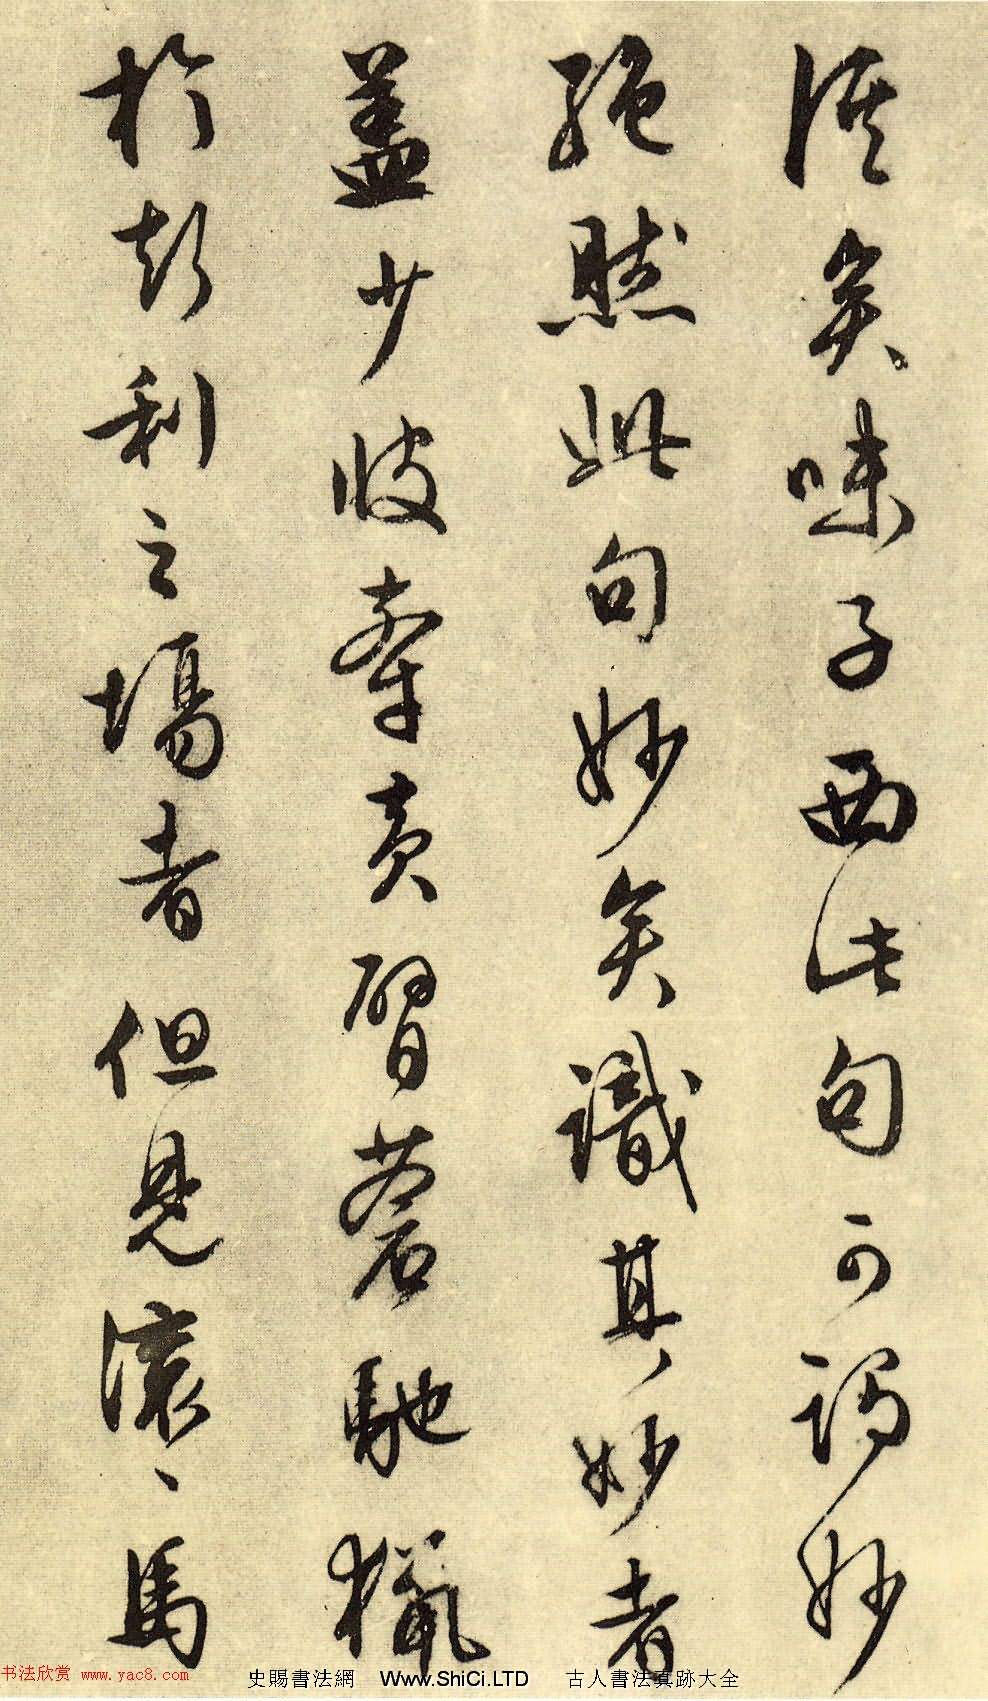 溪矣味子西此句可謂妙
絕然此句妙矣識其妙者
蓋少彼牽黃臂蒼馳獵
於聲利之場者但見滾〻馬
书法欣赏 www.yac8.com
史賜書法網 Www.ShiCi.LTD 古人書法真跡大全